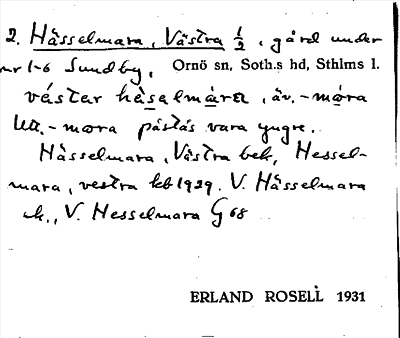 2. Hässelmara, Västra 1/2, gård under
nr 1-6 Sundby, Ornö sn, Soth.s hd, Sthlms l.
västar häselmàra, äv. -mora
Utt. -mora påstås vara yngre.
Hässelmara, Västra bek, Hessel-
mara, vestra kb 1929. V. Hässelmara
V. Hesselmara G 68
ERLAND ROSELL 1931